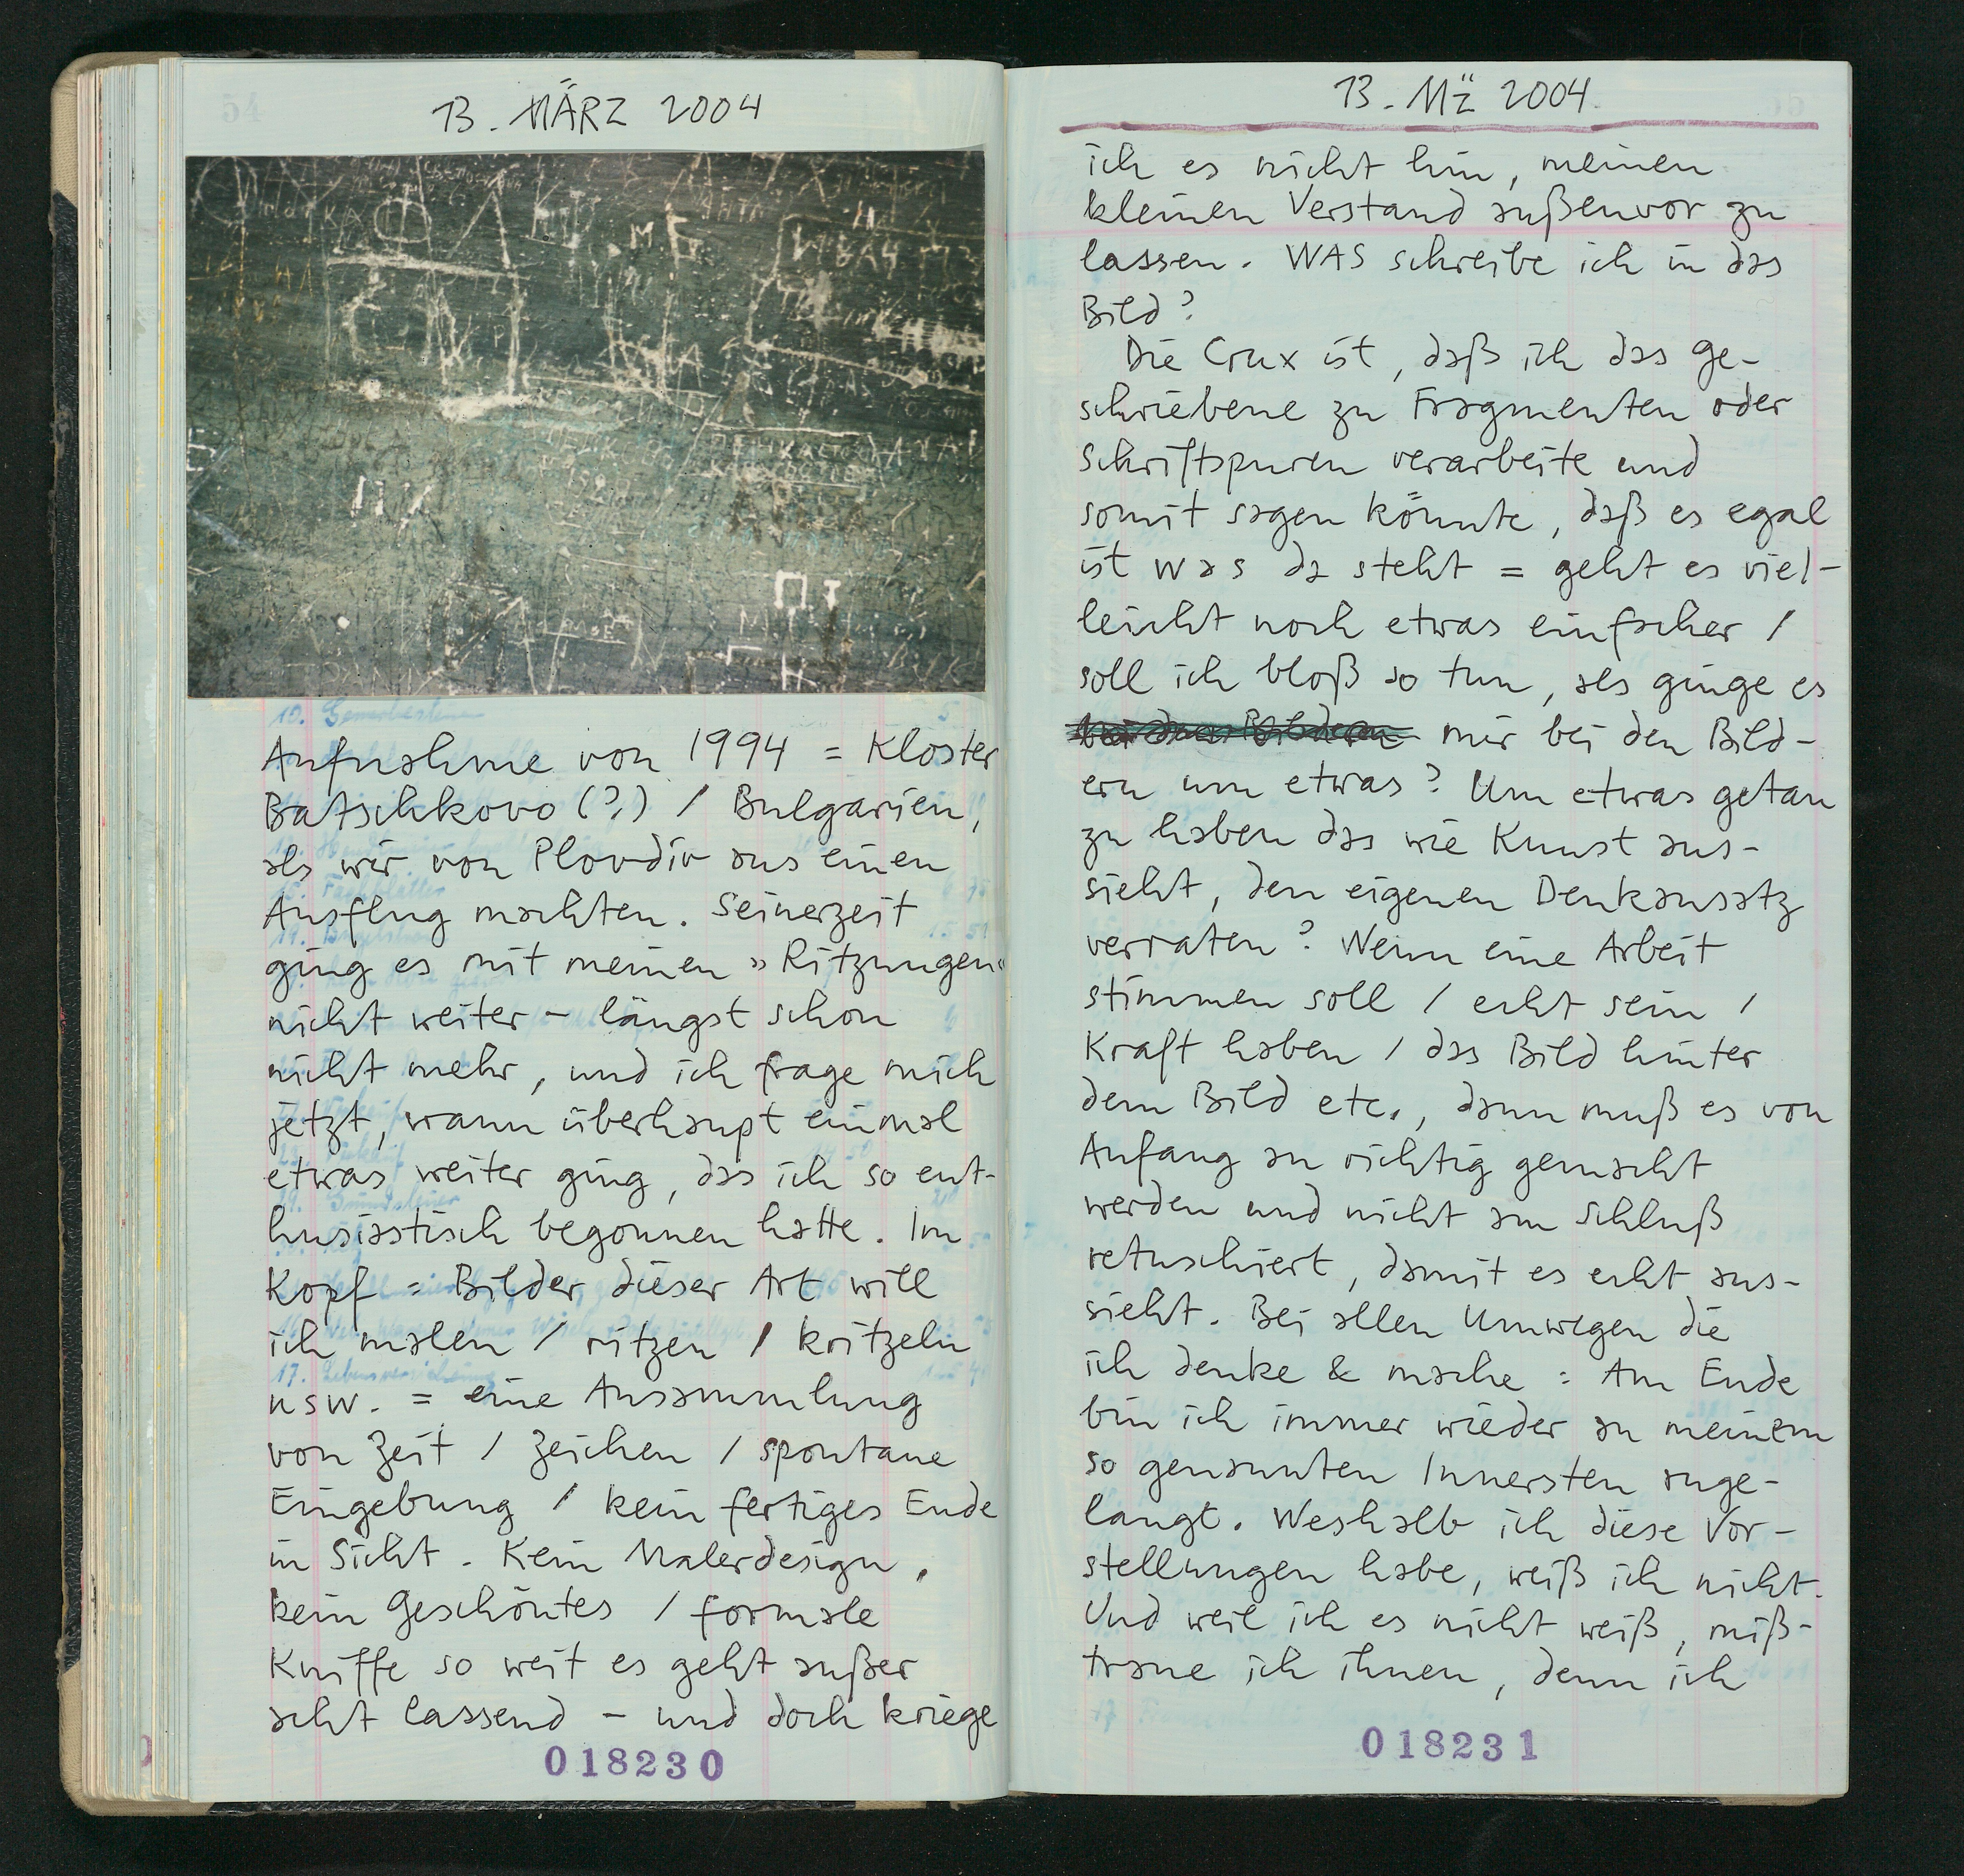 13. MÄRZ 2004
Aufnahme von 1994 = Kloster
Batschkovo (?) / Bulgarien,
als wir von Plovdiv aus einen
Ausflug machten. Seinerzeit
ging es mit meinen »Ritzungen«
nicht weiter – längst schon
nicht mehr, und ich frage mich
jetzt, wann überhaupt einmal
etwas weiter ging, das ich so ent-
husiastisch begonnen hatte. Im
Kopf = Bilder dieser Art will
ich malen / ritzen / kritzeln
usw. = eine Ansammlung
von Zeit / Zeichen / spontane
Eingebung / kein fertiges Ende
in Sicht. Kein Malerdesign,
kein Geschöntes / formale
Kniffe so weit es geht außer
acht lassend – und doch kriege
018230
13. Mz 2004
ich es nicht hin, meinen
kleinen Verstand außenvor zu
lassen. WAS schreibe ich in das
Bild?
Die Crux ist, daß ich das ge-
schriebene zu Fragmenten oder
Schriftspuren verarbeite und
somit sagen könnte, daß es egal
ist was da steht = geht es viel-
leicht noch etwas einfacher /
soll ich bloß so tun, als ginge es
bei den Bildern mir bei den Bild-
ern um etwas? Um etwas getan
zu haben das wie Kunst aus-
sieht, den eigenen Denkansatz
verraten? Wenn eine Arbeit
stimmen soll / echt sein /
Kraft haben / das Bild hinter
dem Bild etc., dann muß es von
Anfang an richtig gemacht
werden und nicht am Schluß
retuschiert, damit es echt aus-
sieht. Bei allen Umwegen die
ich denke & mache : Am Ende
bin ich immer wieder an meinem
so genannten Innersten ange-
langt. Weshalb ich diese Vor-
stellungen habe, weiß ich nicht.
Und weil ich es nicht weiß, miß-
traue ich ihnen, denn ich
018231